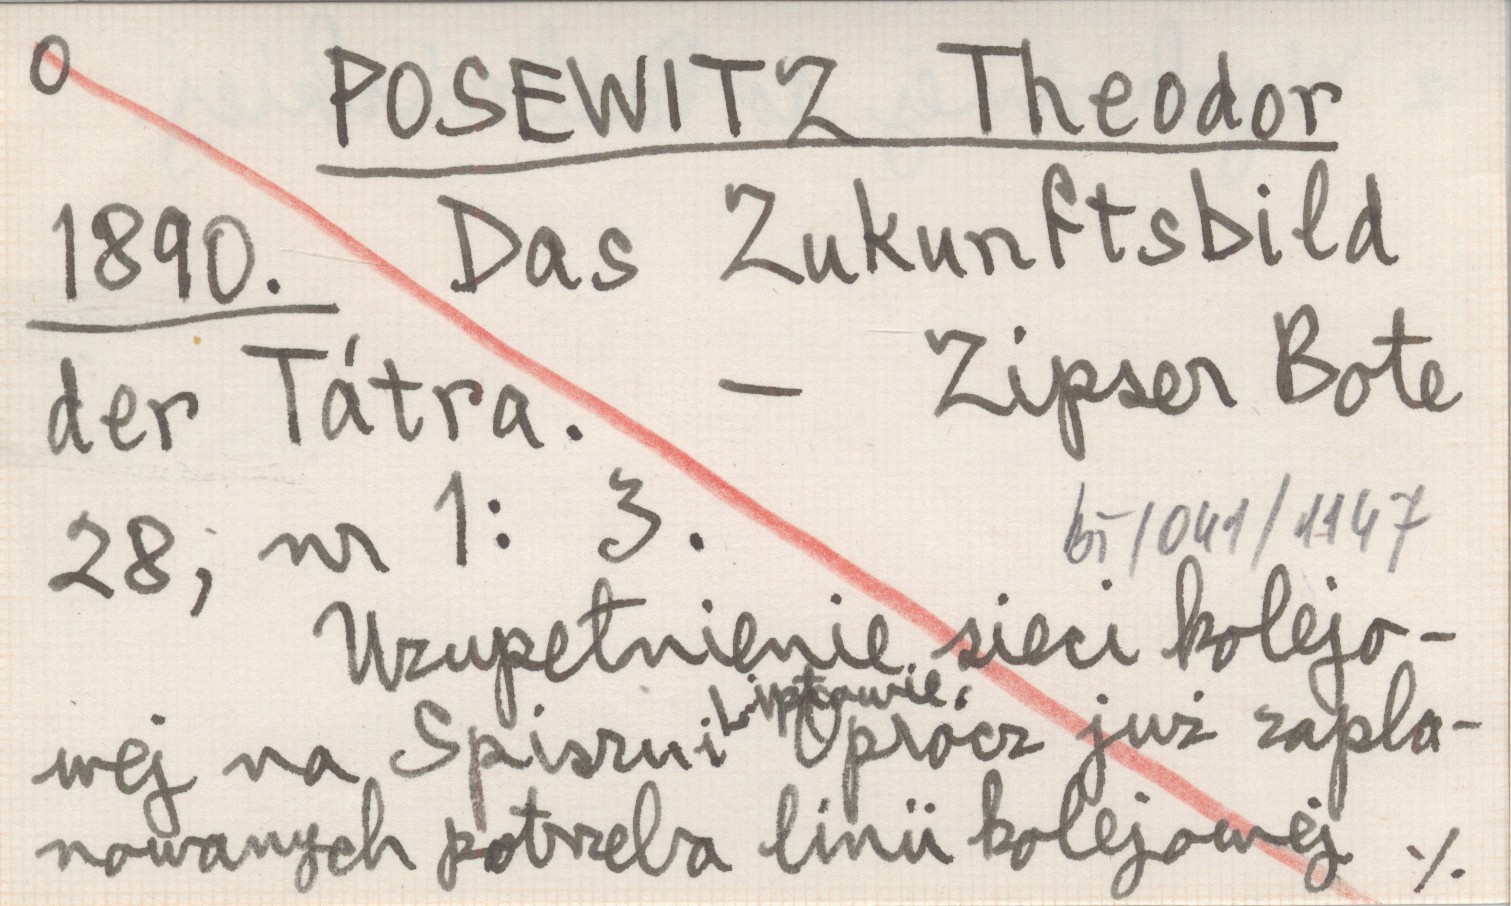 O POSEWITZ Theodor
1890. Das Zukunftsbild
der Tátra. — Zipser Bote
28, nr 1: 3.
bi/041/1147
Uzupełnienie sieci kolejo-
wej na Spiszu i Liptowie. Oprócz już zapla-
nowanych potrzeba linii kolejowej ./.